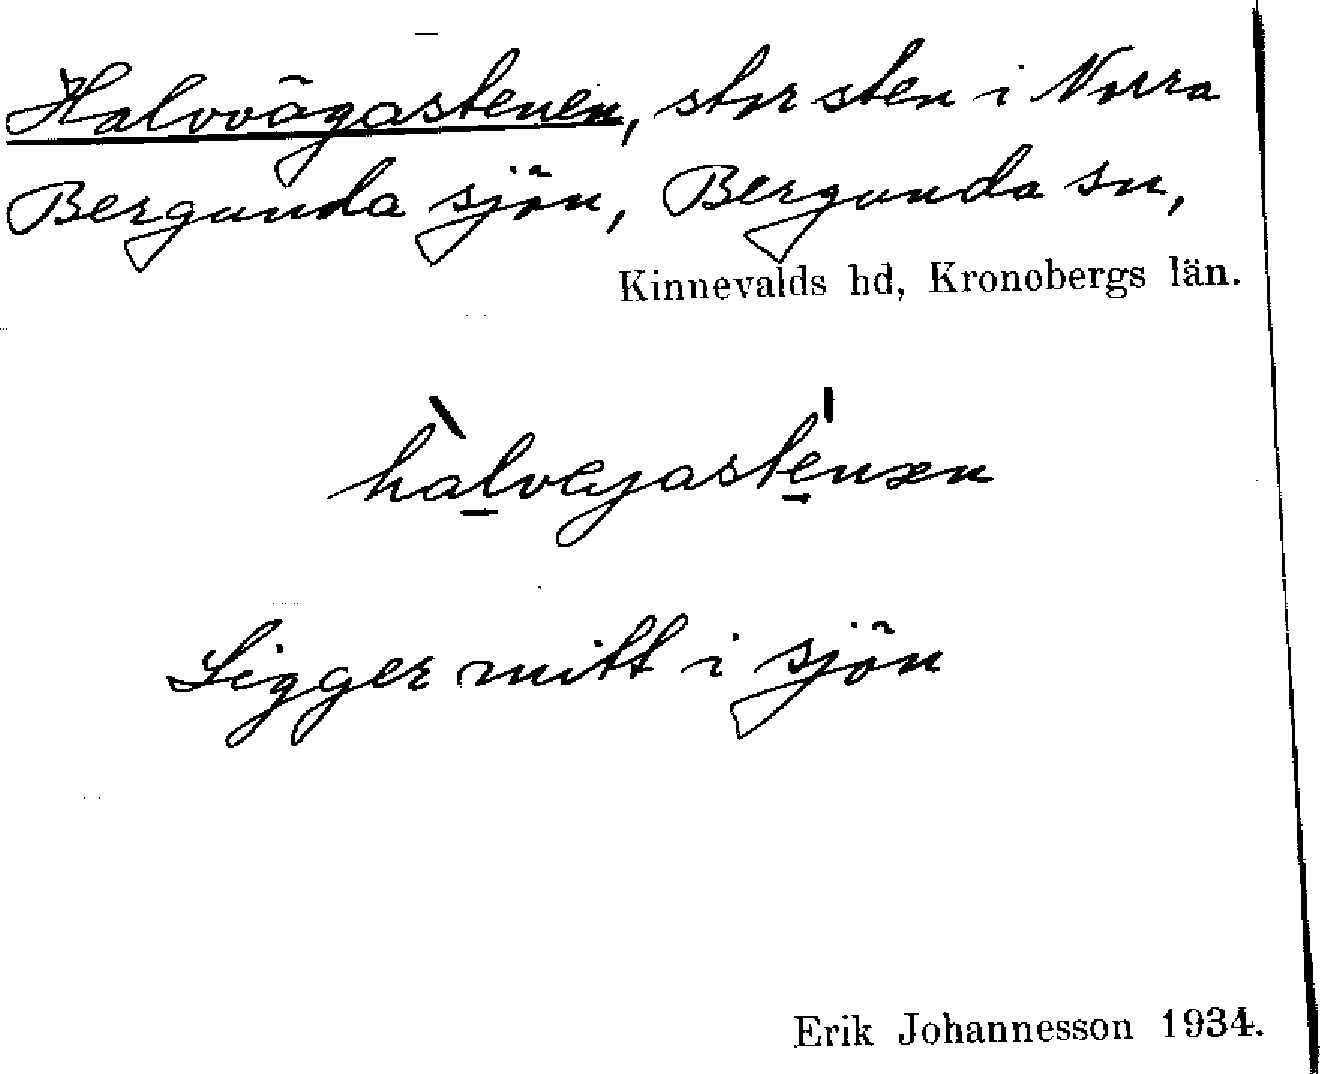 Halvvägastenen, stor sten i Norra
Bergunda sjön, Bergunda sn,
Kinnevalds hd, Kronobergs län.
hàlvęgasténən
Ligger mitt i sjön
Erik Johannesson 1934.